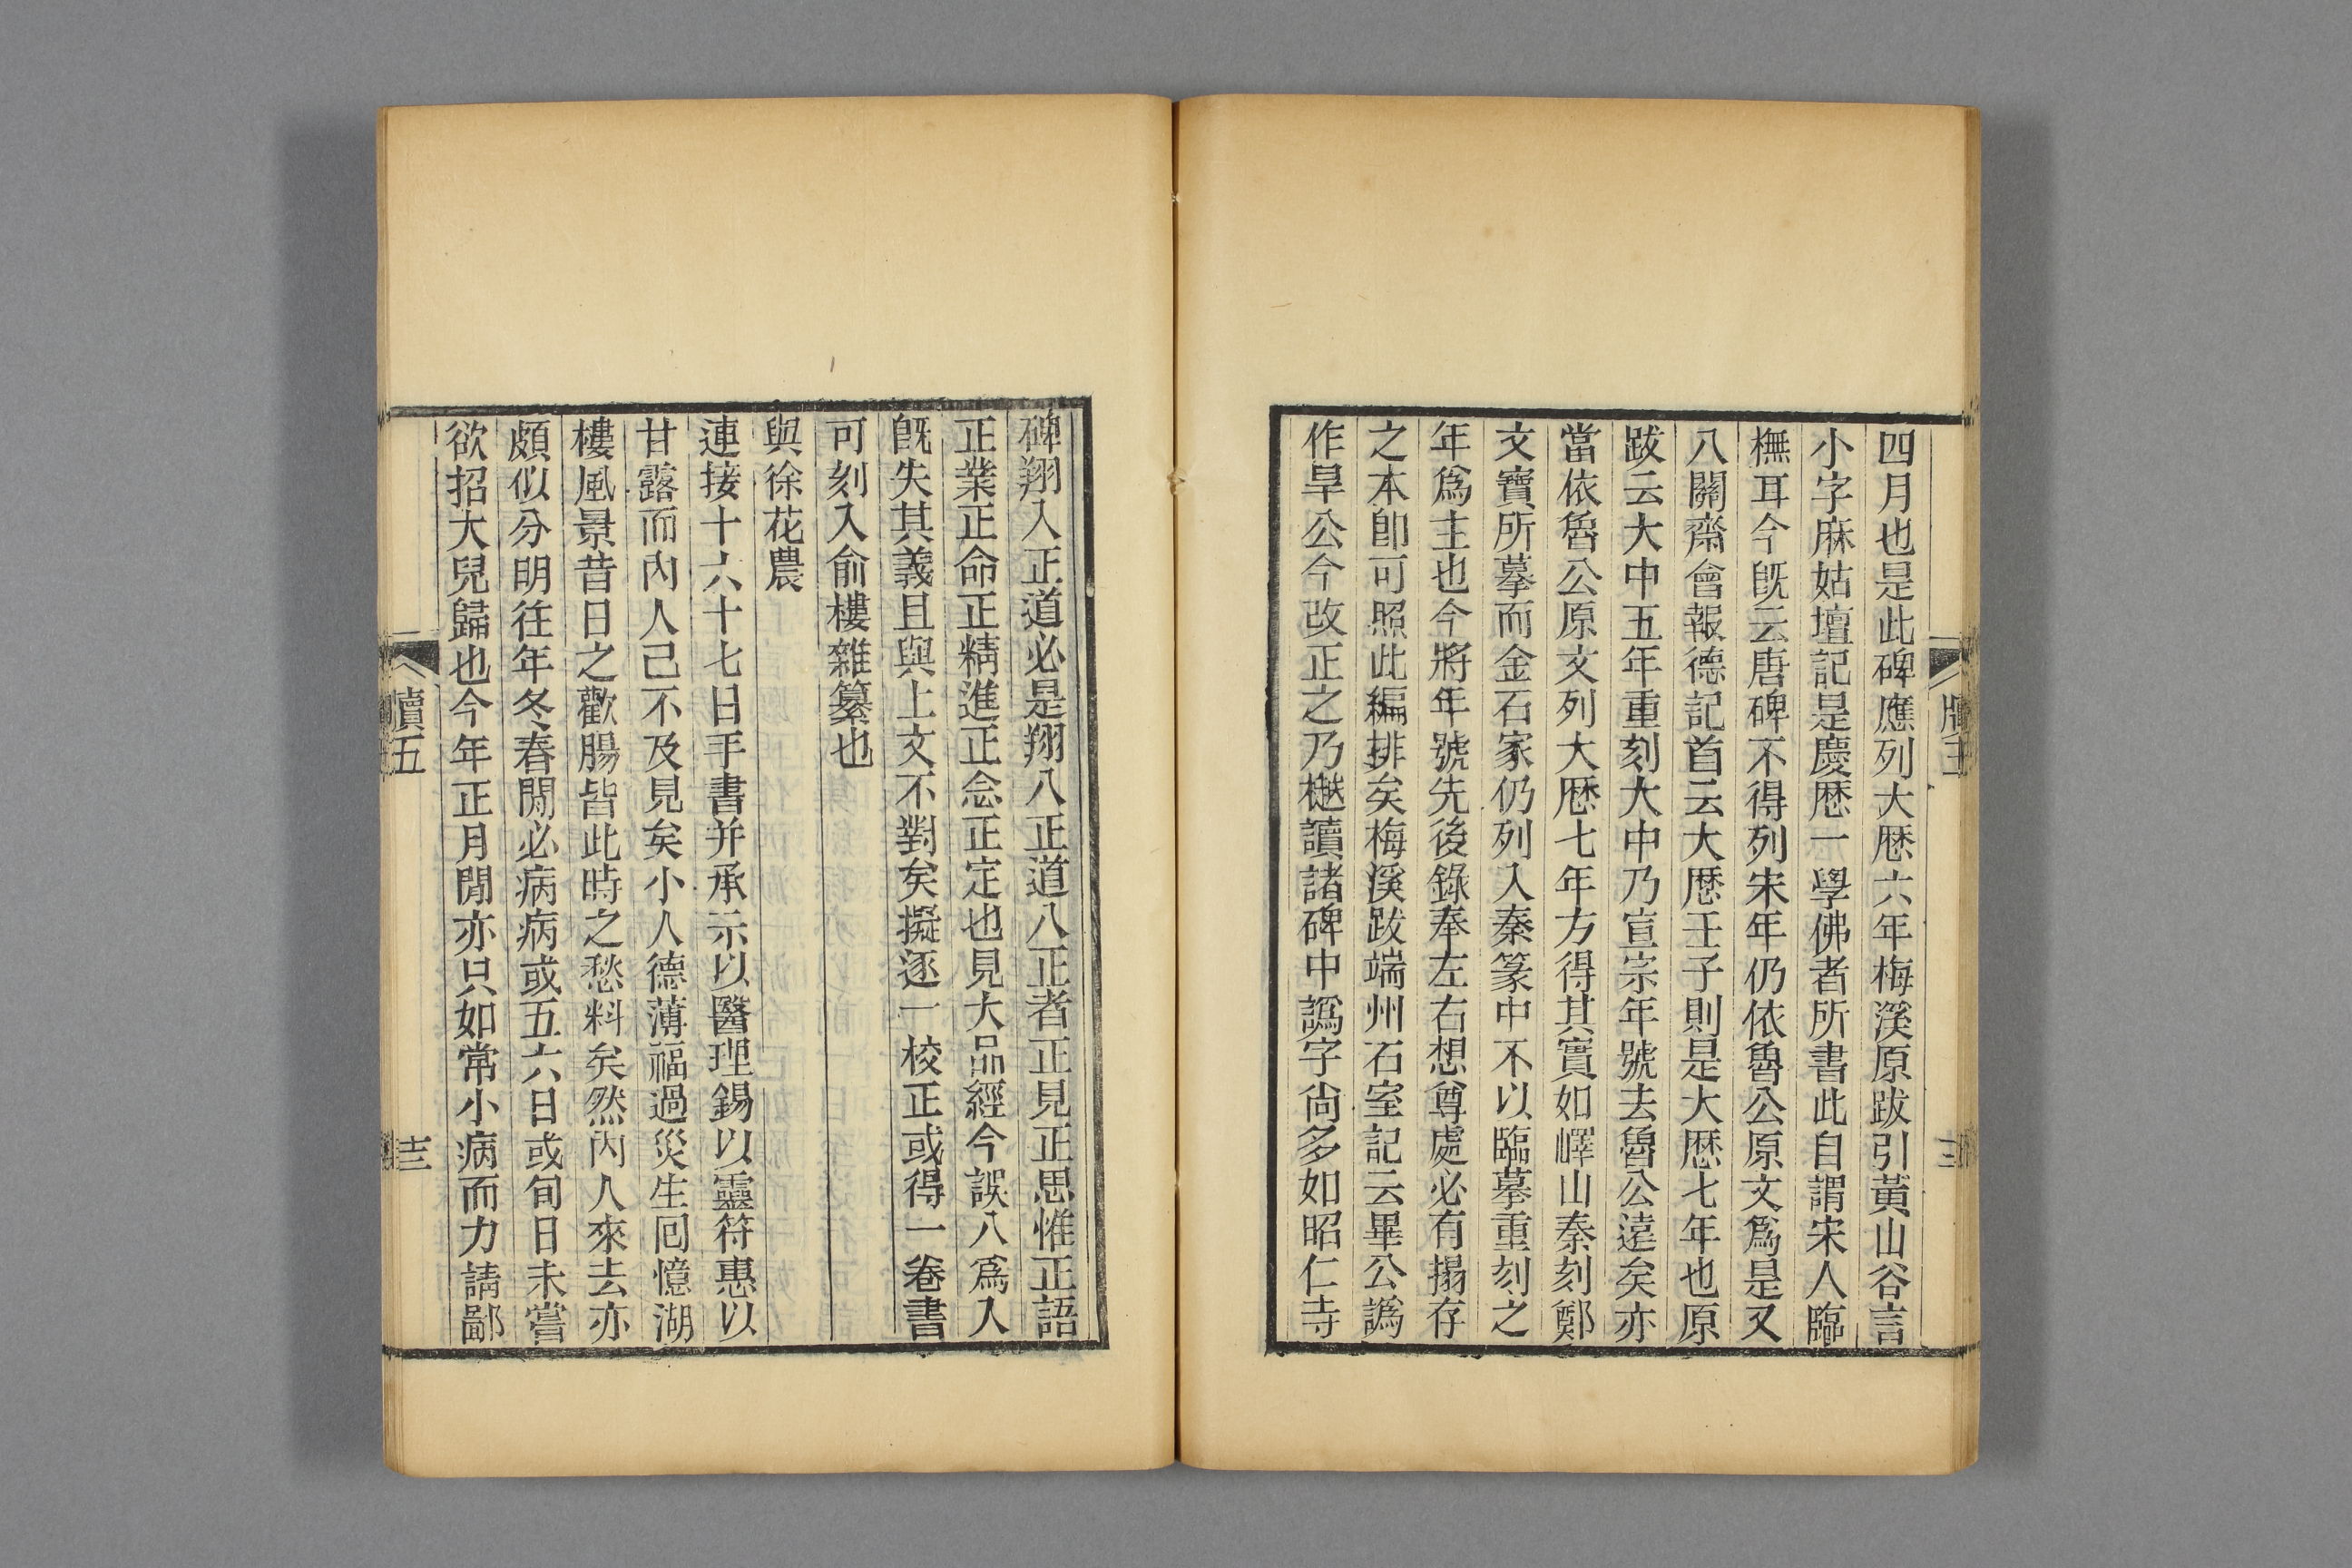 四月也是此碑應列大厯六年梅溪原跋引黃山谷言
小字麻姑壇記是慶厯一學佛者所書此自謂宋人臨
橅耳今旣云唐碑不得列宋年仍依魯公原文爲是又
八關齋會報德記首云大厯壬子則是大厯七年也原
跋云大中五年重刻大中乃宣宗年號去魯公遠矣亦
當依魯公原文列大厯七年方得其實如嶧山秦刻鄭
文寶所摹而金石家仍列入秦篆中不以臨摹重刻之
年爲主也今將年號先後錄奉左右想尊處必有搨存
之本卽可照此編排矣梅溪跋端州石室記云畢公譌
作皐公今改正之乃樾讀諸碑中譌字尙多如昭仁寺
碑翔入正道必是翔八正道八正者正見正思惟正語
正業正命正精進正念正定也見大品經今誤八爲入
旣失其義且與上文不對矣擬逐一校正或得一卷書
可刻入俞樓雜纂也
與徐花農
連接十六十七日手書并承示以醫理錫以靈符惠以
甘露而內人已不及見矣小人德薄福過災生回憶湖
樓風景昔日之歡腸皆此時之愁料矣然內人來去亦
頗似分明往年冬春閒必病病或五六日或旬日未嘗
欲招大兒歸也今年正月閒亦只如常小病而力請鄙
牘五
十三